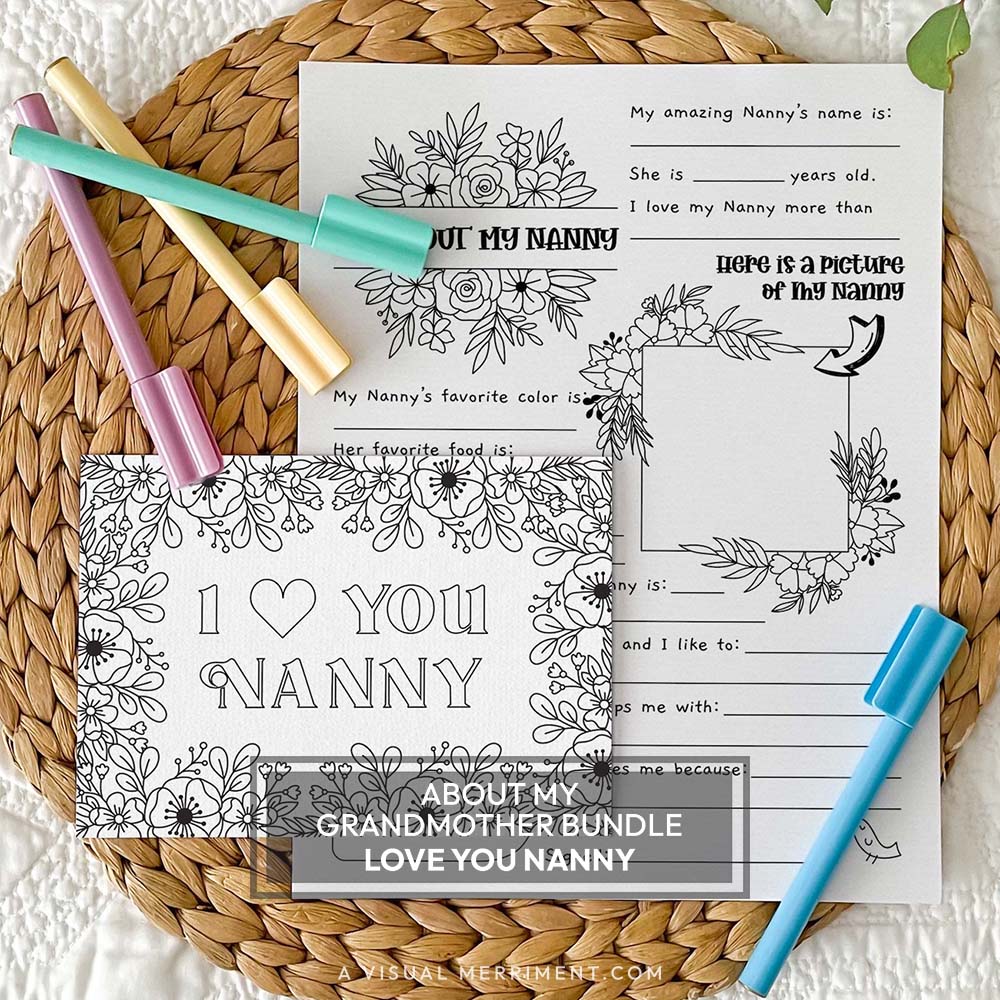 My amazing Nanny's name is:
She is ________ years old.
I love my Nanny more than
OUT MY NANNY
Here is a picture
of my Nanny
My Nanny's favorite color is:
Her favorite food is:
I ♡ YOU
NANNY
ny is: ____
and I like to:
ps me with:
es me because:
ABOUT MY
GRANDMOTHER BUNDLE
LOVE YOU NANNY
A VISUAL MERRIMENT.COM